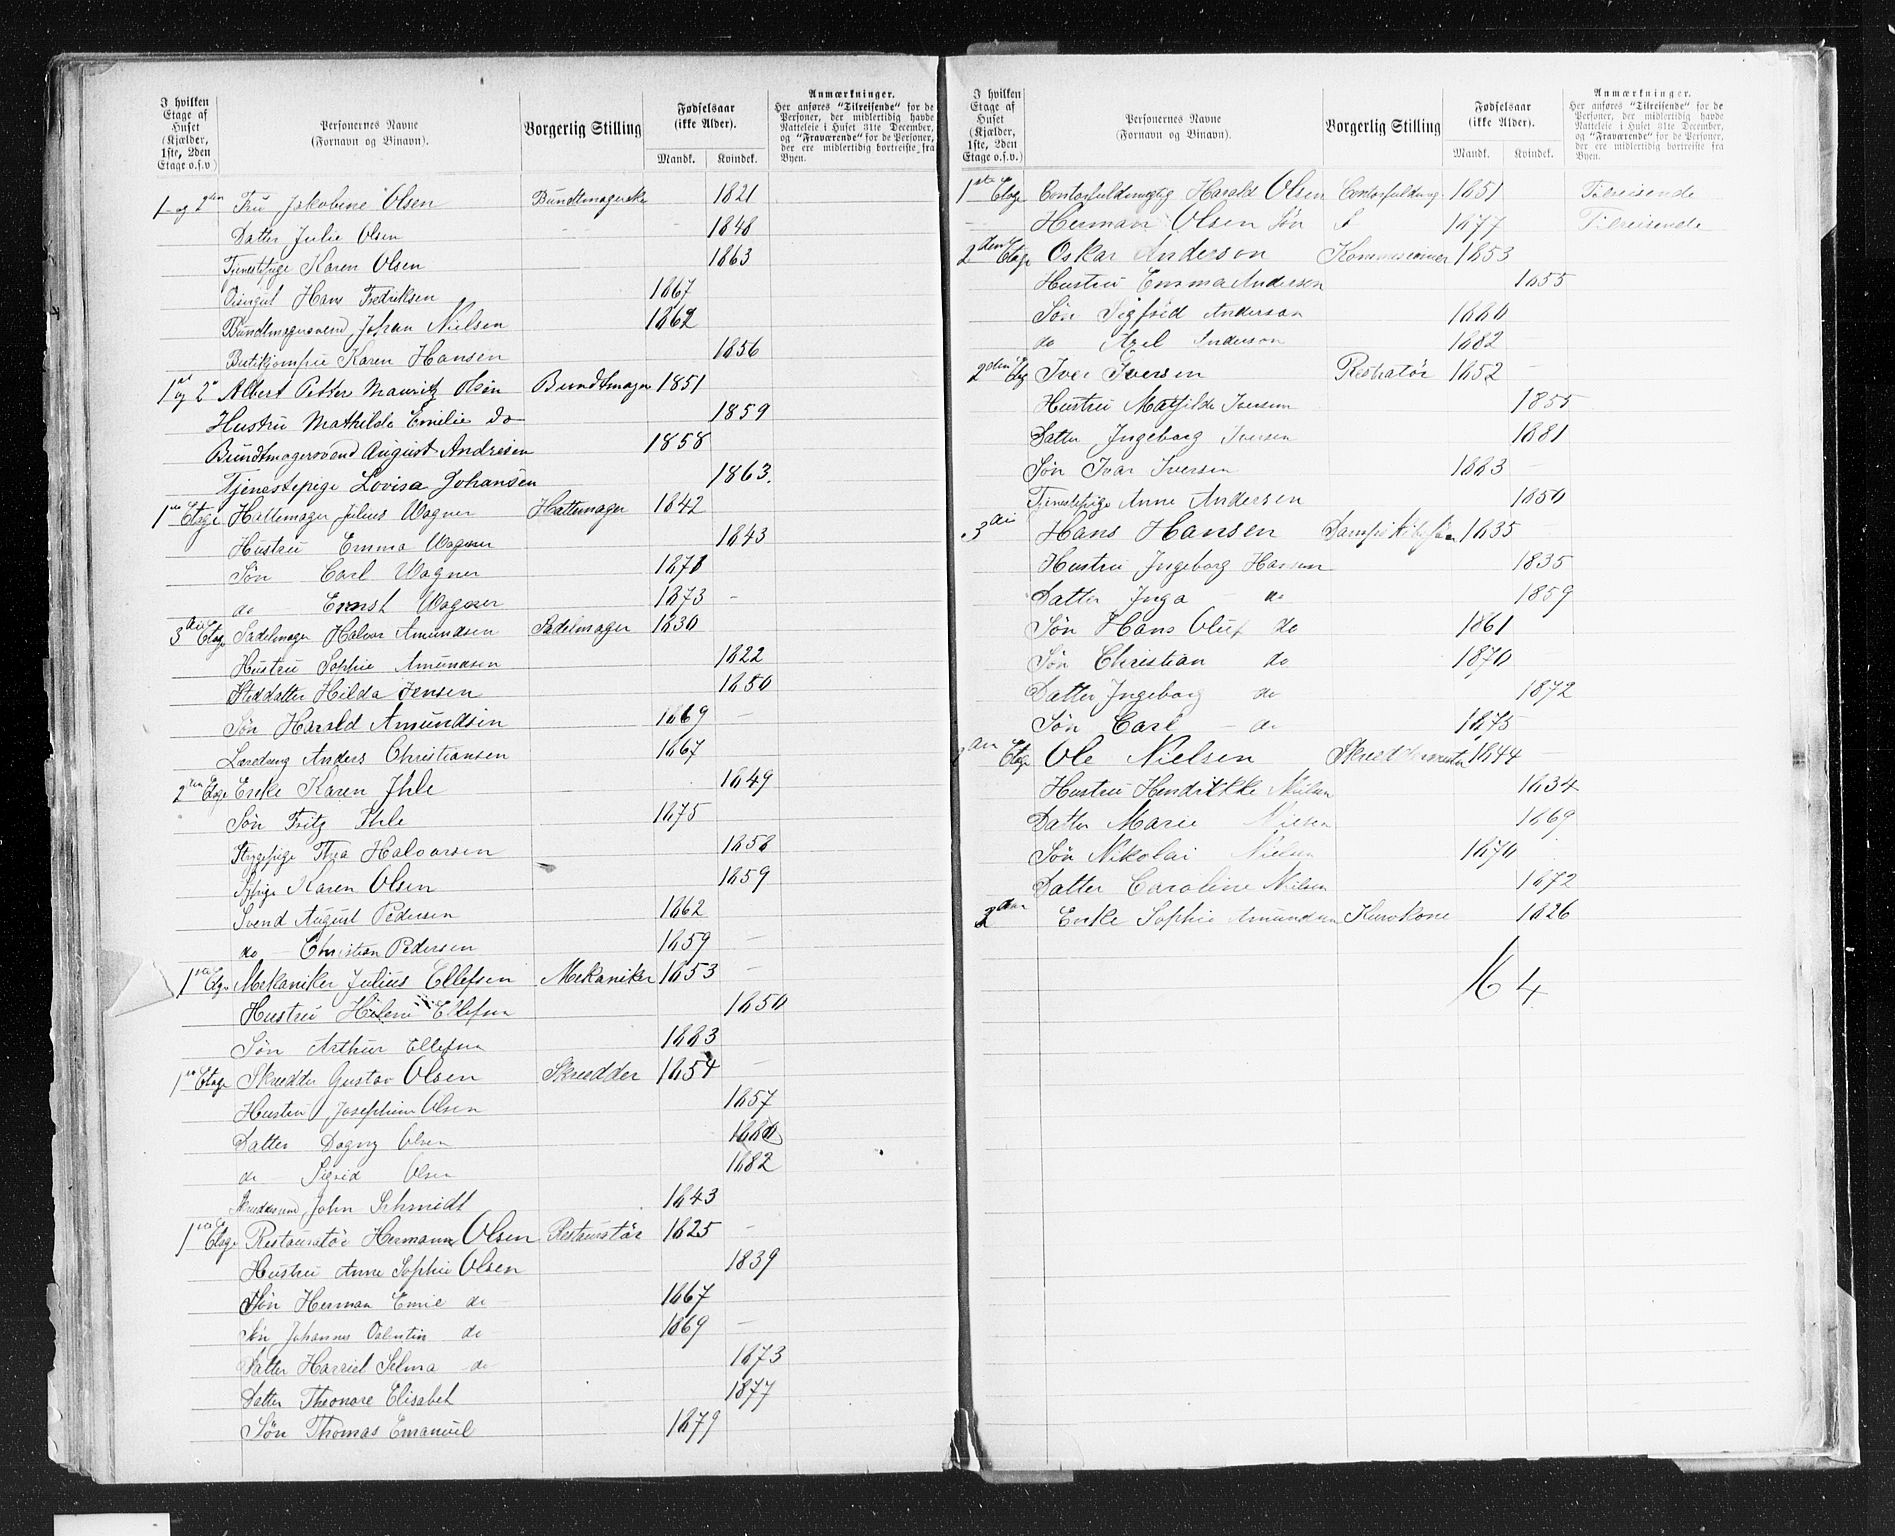 I hvilken Etage af Huset (Kjælder, 1ste, 2den Etage o.s.v)
Personernes Navne (Fornavn og Binavn).
Borgerlig Stilling
Fødselsaar (ikke Alder).
Mandk. Kvindek.
Anmærkninger.
Her anføres "Tilreisende" for de Personer, der midlertidig havde Natteleie i Huset 31te December, og "Fraværende" for de Personer, der ere midlertidig bortreiste fra Byen.
1 og 2den Fru Jakobine Olsen Bundtmagerske 1821
Datter Julie Olsen 1848
Tjenestepige Karen Olsen 1863
Visergut Hans Fredriksen 1867
Bundtmagersvend Johan Nielsen 1862
Butikjomfru Karen Hansen 1856
1st og 2" Albert Petter Mauritz Olsen Bundtmager 1851
Hustru Mathilde Emilie do 1859
Bundtmagersvend August Andresen 1858
Tjenestepige Lovisa Johansen 1863.
1ste Etage Hattemager Julius Wagner Hattemager 1842
Hustru Emma Wagner 1843
Søn Carl Wagner 1871
do Ernst Wagner 1873
3die Etage Sadelmager Halvor Amundsen Sadelmager 1830
Hustru Sophie Amundsen 1822
Steddatter Hilda Jensen 1850
Søn Harald Amundsen 1869
Læredreng Anders Christiansen 1867
2den Etage Enke Karen Ihle 1849
Søn Fritz Ihle 1875
Strygepige Thea Halvorsen 1858
Sypige Karen Olsen 1859
Svend August Pedersen 1862
do Christian Pedersen 1859
1ste Etge Mekaniker Julius Ellefsen Mekaniker 1853
Hustru Helene Ellefsen 1850
Søn Arthur Ellefsen 1883
1ste Etage Skredder Gustav Olsen Skredder 1854
Hustru Josephine Olsen 1857
Datter Dagny Olsen 1880
do Sigrid Olsen 1882
John Schmidt 1843
1ste Etage Restauratør Hermann Olsen Restauratør 1825
Hustru Anne Sophie Olsen 1839
Søn Herman Emil do 1867
Søn Johannes Valentin do 1869
Datter Harriet Selma do 1873
Datter Theonore Elisabet 1877
Søn Thomas Emanuel 1879
I hvilken Etage af Huset (Kjælder, 1ste, 2den Etage o.s.v.)
Personernes Navne (Fornavn og Binavn).
Borgerlig Stilling
Fødselsaar (ikke Alder).
Mandk. Kvindek.
Anmærkninger.
Her anføres "Tilreisende" for de Personer, der midlertidig havde Natteleie i Huset 31te December, og "Fraværende" for de Personer, der ere midlertidig bortreiste fra Byen.
1ste Etage Contorfuldmægtig Harald Olsen Contorfuldmg 1851 Tilreisende
Herman Olsen Søn S 1877 Tilreisende
2den Etage Oskar Anderson 1853
Hustru Emma Anderson 1855
Søn Sigfrid Anderson 1880
do Axel Anderson 1882
2den Etg Iver Iversen 1852
Hustru Mathilde Iversen 1855
Datter Ingeborg Iversen 1881
Søn Ivar Iversen 1883
Tjenestepige Anne Andersen 1850
3die Hans Hansen 1835
Hustru Ingeborg Hansen 1835
Datter Inga do 1859
Søn Hans Oluf do 1861
Søn Christian do 1870
Datter Ingeborg do 1872
Søn Carl do 1875
Etage Ole Nielsen 1844
Hustru Hendrikke Nielsen 1834
Datter Marie Nielsen 1869
Søn Nikolai Nielsen 1870
Datter Caroline Nielsen 1872
2den Enke Sophie Amundsen 1826